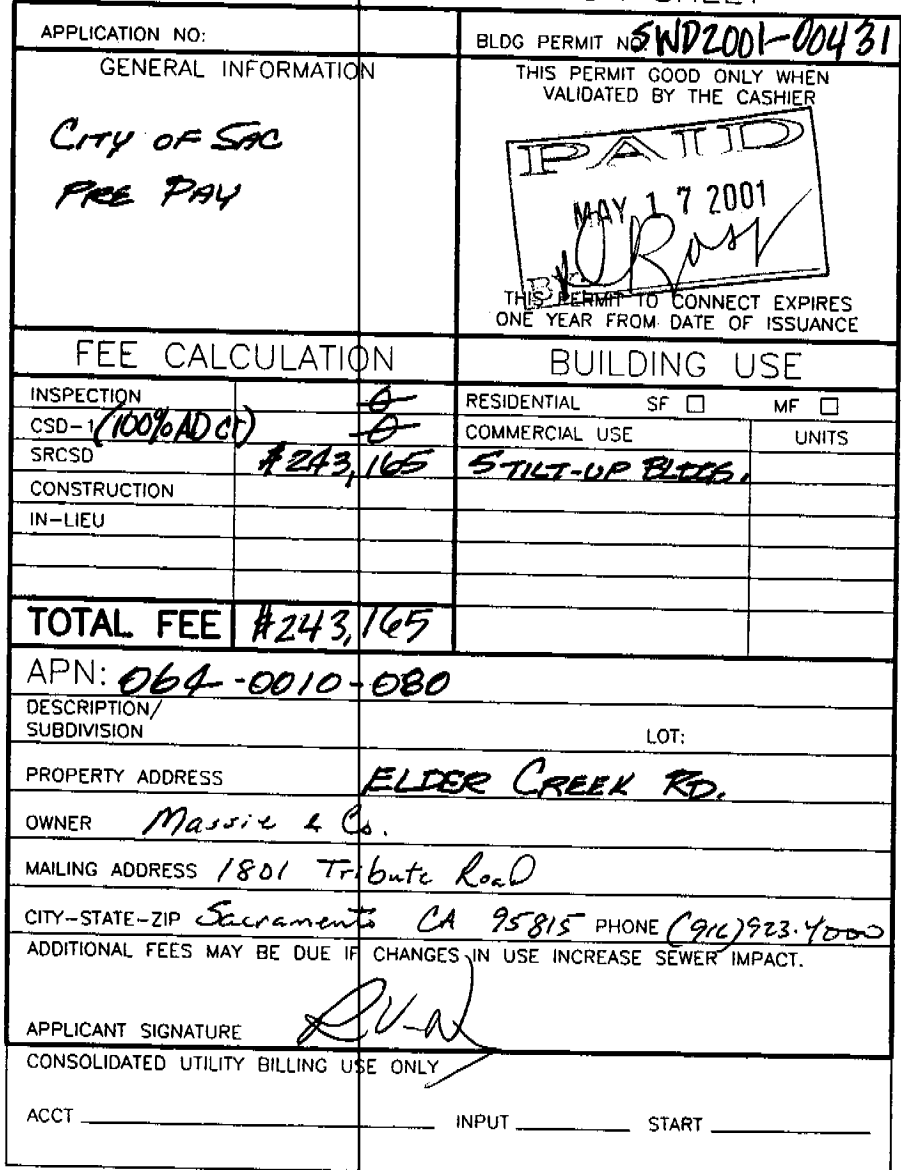 APPLICATION NO:
BLDG PERMIT NO SWD2001-00431
GENERAL INFORMATION
CITY OF SAC
PRE PAY
THIS PERMIT GOOD ONLY WHEN
VALIDATED BY THE CASHIER
PAID
MAY 17 2001
BY
THIS PERMIT TO CONNECT EXPIRES
ONE YEAR FROM DATE OF ISSUANCE
FEE CALCULATION
INSPECTION 0
CSD-1 (100% AD CT) 0
SRCSD $243,165
CONSTRUCTION
IN-LIEU
TOTAL FEE $243,165
BUILDING USE
RESIDENTIAL SF ☐ MF ☐
COMMERCIAL USE UNITS
5 TILT-UP BLDGS.
APN: 064-0010-080
DESCRIPTION/
SUBDIVISION LOT:
PROPERTY ADDRESS ELDER CREEK RD.
OWNER Massie & Co.
MAILING ADDRESS 1801 Tribute Road
CITY-STATE-ZIP Sacramento CA 95815 PHONE (916) 923-4000
ADDITIONAL FEES MAY BE DUE IF CHANGES IN USE INCREASE SEWER IMPACT.
APPLICANT SIGNATURE
CONSOLIDATED UTILITY BILLING USE ONLY
ACCT INPUT START